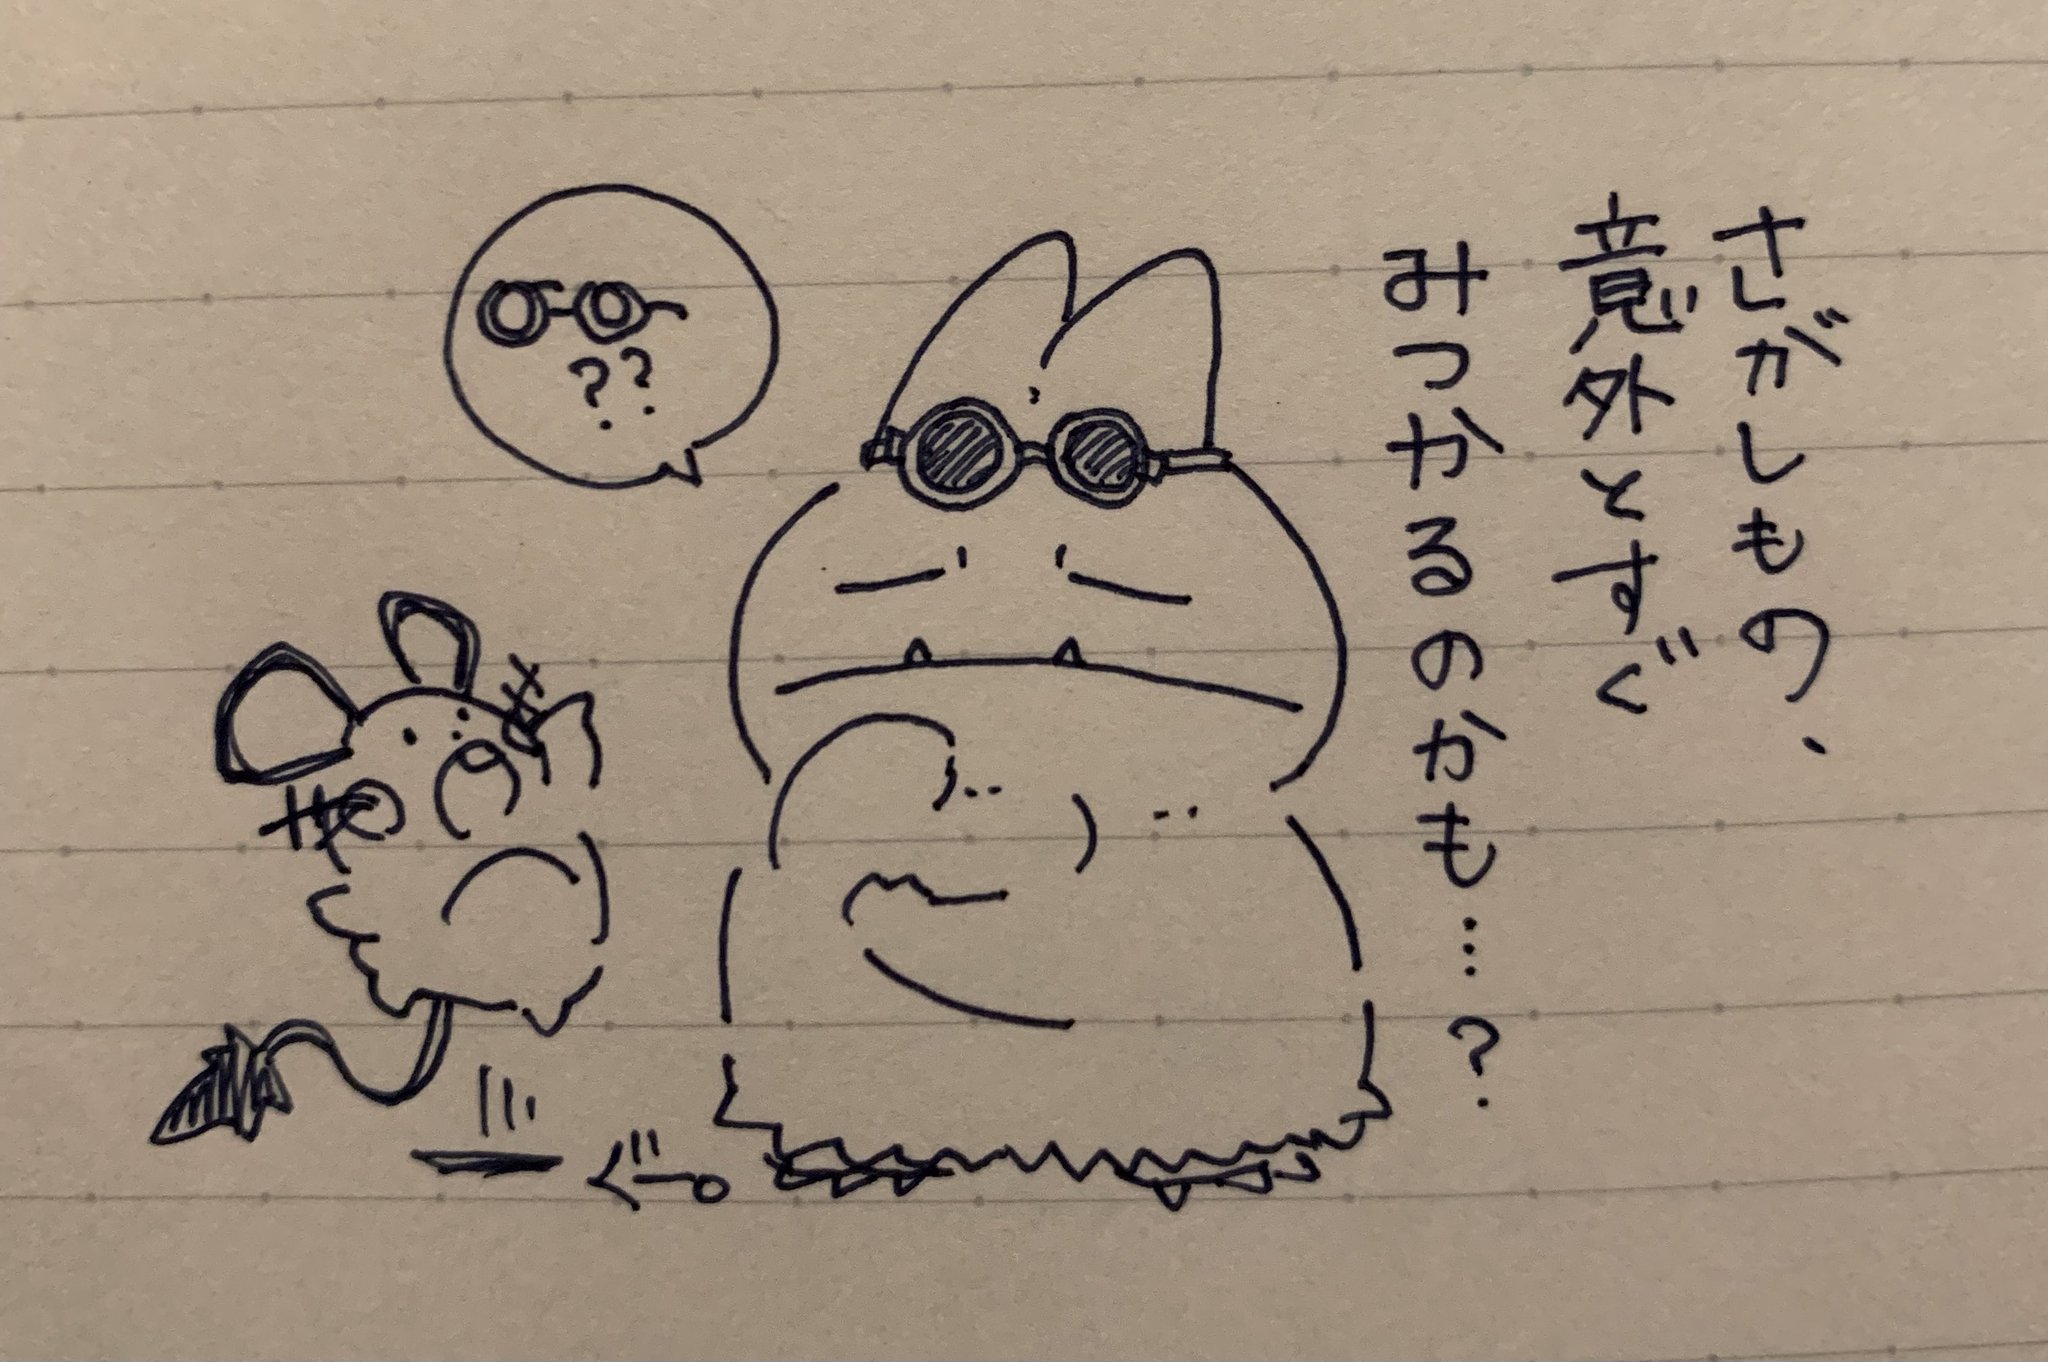 さがしもの、
意外とすぐ
みつかるのかも…?
??